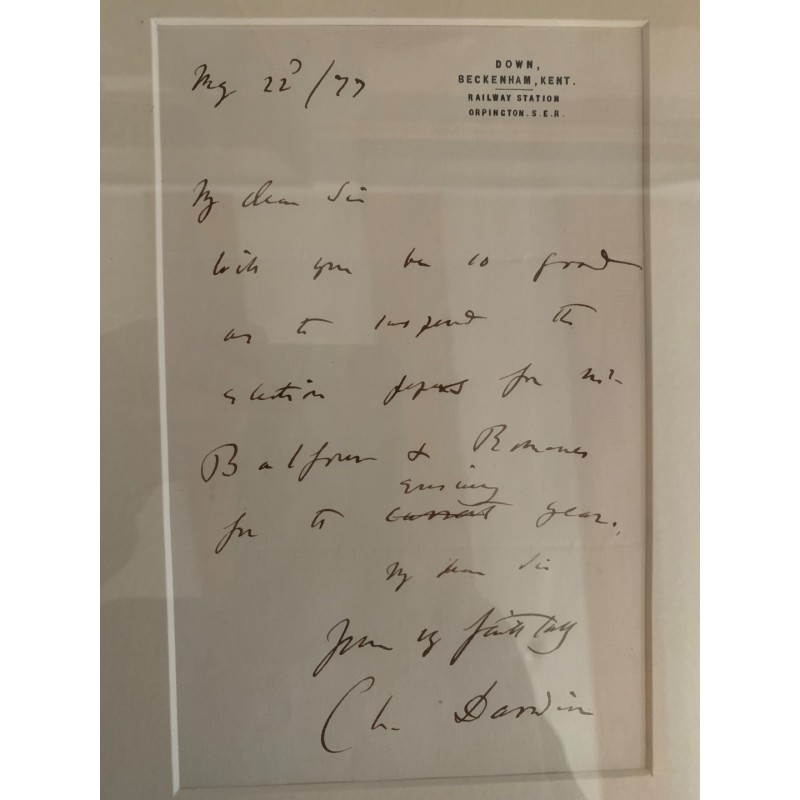 DOWN,
BECKENHAM, KENT.
RAILWAY STATION
ORPINGTON. S.E.R.
May 22d /77
My dear Sir
Will you be so good
as to suspend the
election papers for Mr
Balfour & Romanes
for the current ensuing year.
My dear Sir
Yours vy faithfully
Ch. Darwin